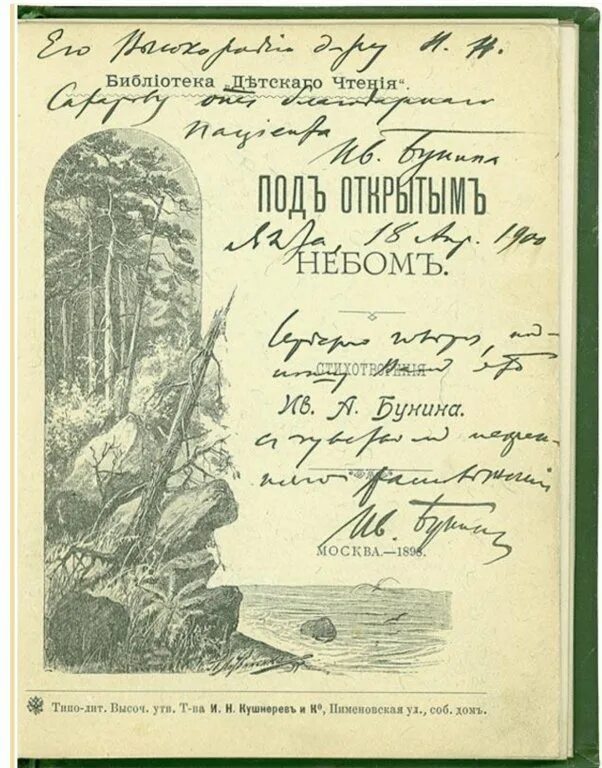 Его Высокородію д-ру И. Н.
Библіотека „Дѣтскаго Чтенія“.
Сафарову отъ благодарнаго
паціента
Ив. Бунина
ПОДЪ ОТКРЫТЫМЪ
Ялта, 18 Апр. 1900
НЕБОМЪ.
СТИХОТВОРЕНІЯ
Ив. А. Бунина.
съ чувствомъ
Ив. Бунинъ
МОСКВА.—1898.
Типо-лит. Высоч. утв. Т-ва И. Н. Кушнеревъ и Кº, Пименовская ул., соб. домъ.